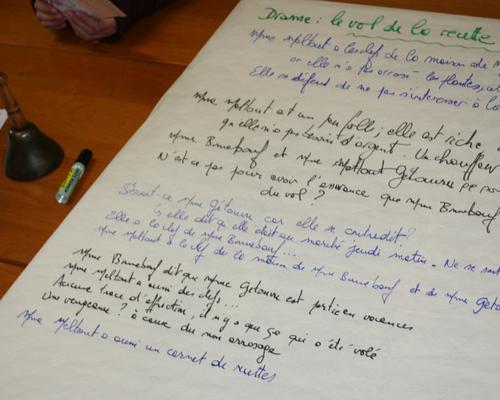 Drame : le vol de la recette
Mme Meltout a les clef de la maison de M
or elle n'a pas arrosé les plantes,
Elle se défend de ne pas s'intéresser à
Mme Meltout est un peu folle, elle est riche
qu'elle n'a pas besoin d'argent. Un chauffeur
Mme Bunebouf et Mme Meltout Gétouru
N'est ce pas pour avoir l'assurance que Mme Bunebouf
du vol ?
Serait-ce Mme Gétouru car elle se contredit ?
elle dit qu'elle était au marché jeudi matin. Ne se
Elle a la clef de Mme Bunebouf...
Mme Meltout a la clef de la maison de Mme Bunebouf et de Mme
Mme Bunebouf dit que Mme Gétouru est partie en vacances
Mme Meltout a aussi des clefs...
Aucune trace d'effraction, il n'y a que ça qui a été volé
Une vengeance ? à cause du non arrosage
Mme Meltout a aussi un carnet de recettes